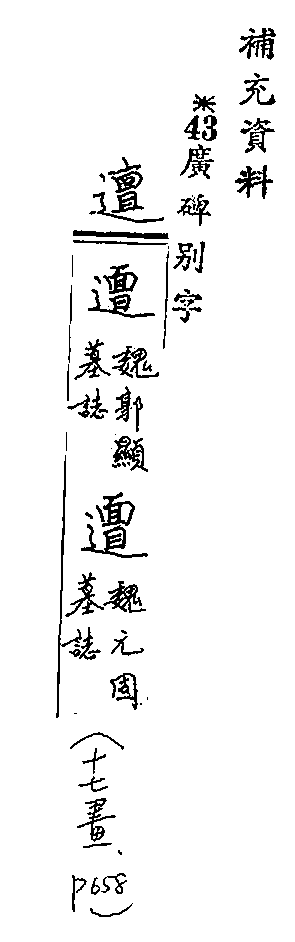 補充資料
*43廣碑別字
邅
魏郭顯
墓誌
魏元固
墓誌
(十七畫、
p658)